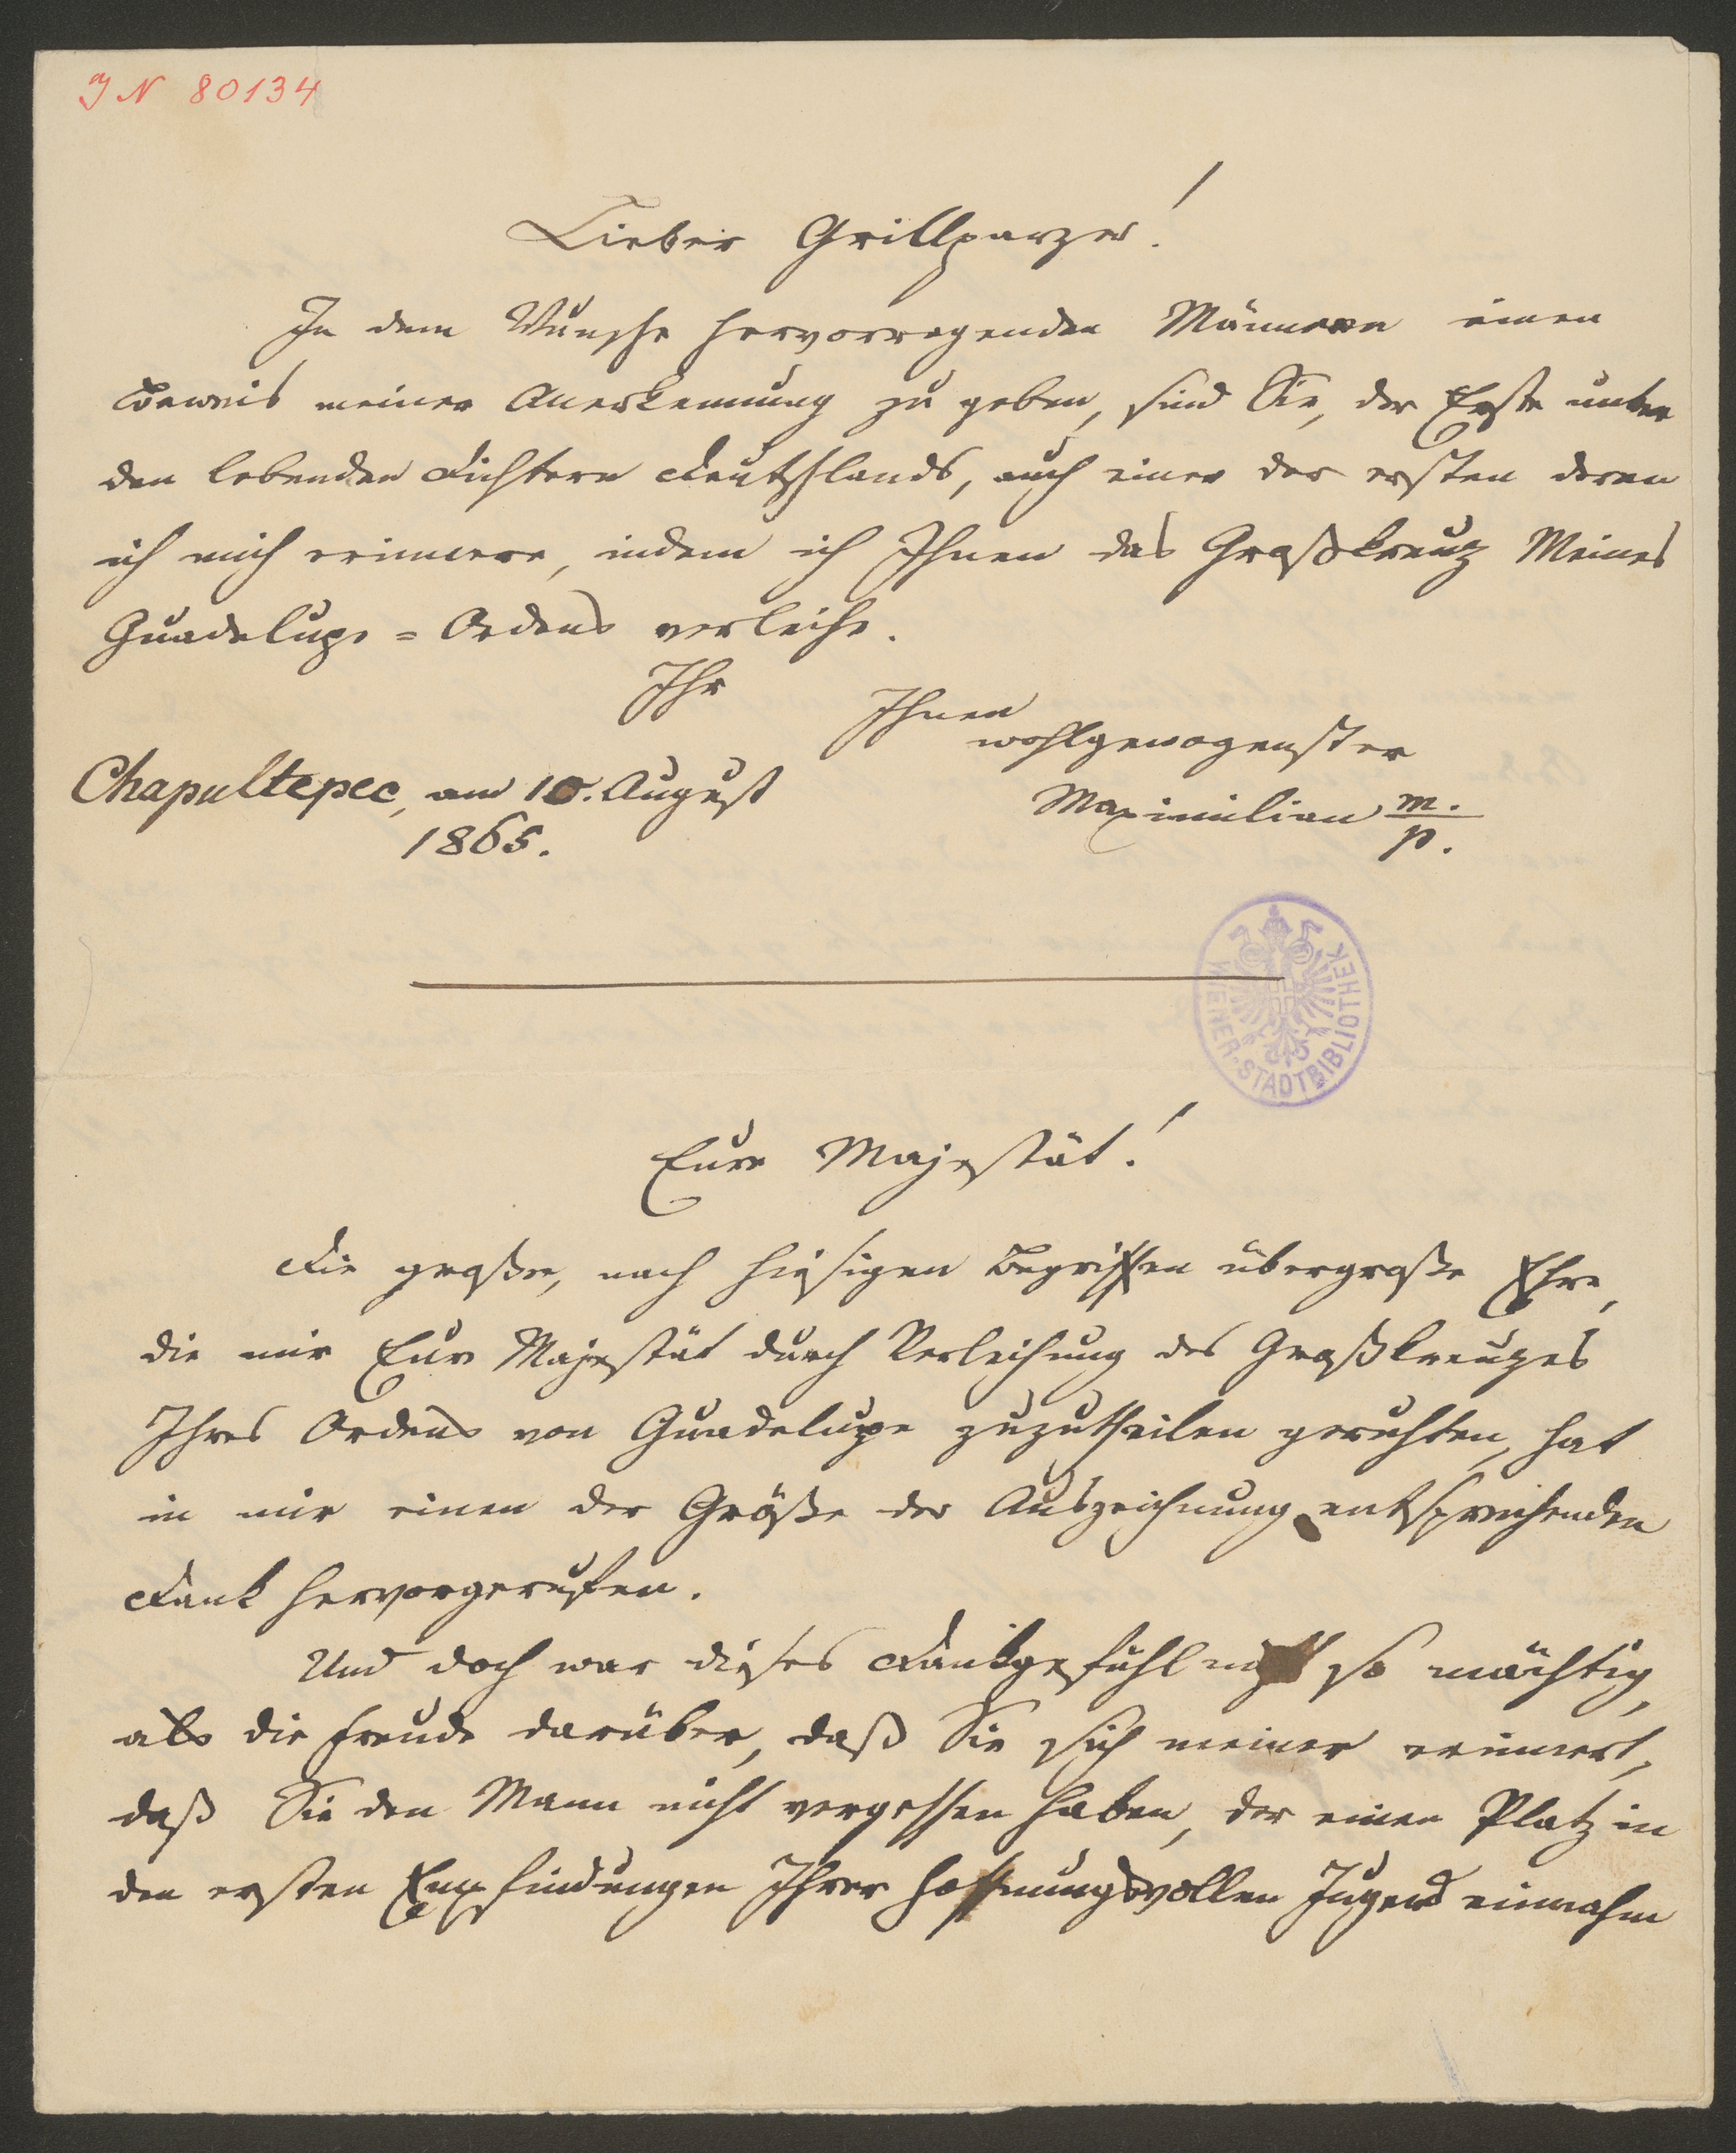 JN 80134
Lieber Grillparzer!
In dem Wunsche hervorragenden Männern einen
Beweis meiner Anerkennung zu geben, sind Sie, der Erste unter
den lebenden Dichtern Deutschlands, auch einer der ersten deren
ich mich erinnere, indem ich Ihnen das Großkreuz Meines
Guadelupe=Ordens verleihe.
Ihr
Ihnen
wohlgewogenster
Chapultepec, am 10. August
1865.
Maximilian m.
p.
WIENER-STADTBIBLIOTHEK
Eure Majestät!
Die große, nach hiesigen Begriffen übergroße Ehre,
die mir Eure Majestät durch Verleihung des Großkreuzes
Ihres Ordens von Guadelupe zuzutheilen geruhten, hat
in mir einen der Größe der Auszeichnung entsprechenden
Dank hervorgerufen.
Und doch war dieses Dankgefühl nicht so mächtig,
als die Freude darüber, daß Sie sich meiner erinnert,
daß Sie den Mann nicht vergessen haben, der einen Platz in
den ersten Empfindungen Ihrer hoffnungsvollen Jugend einnahm